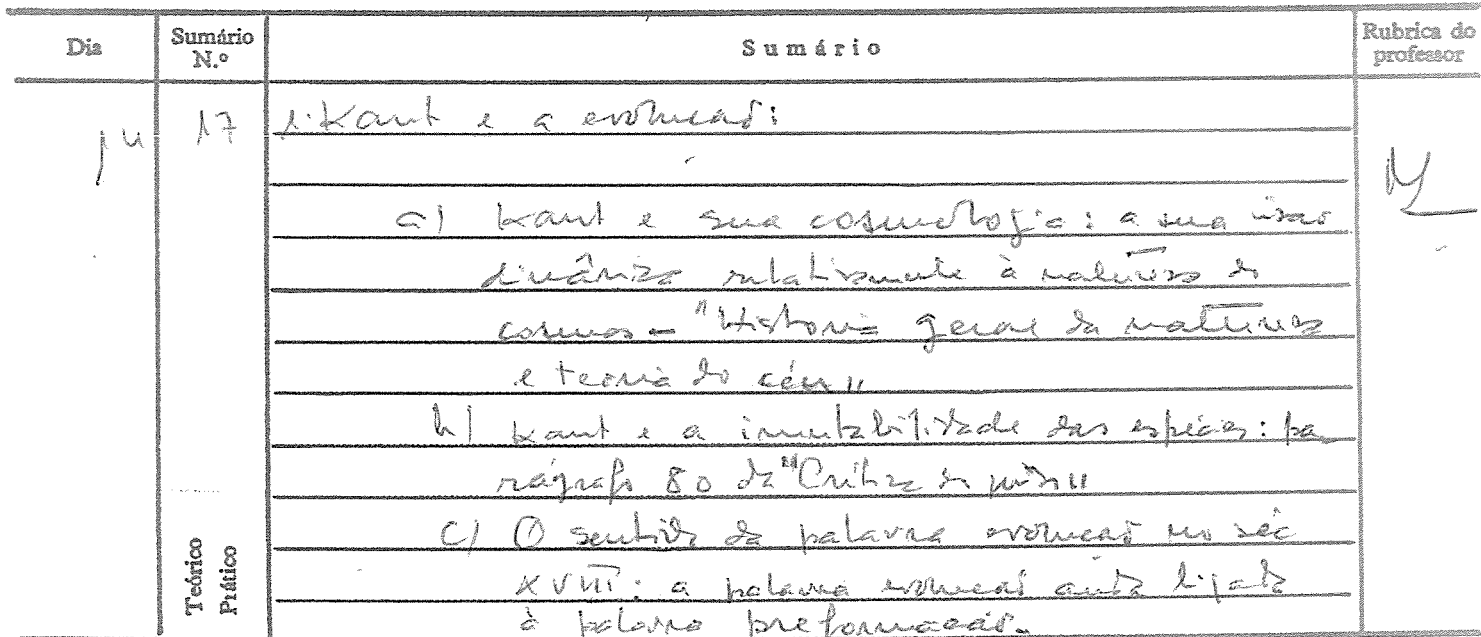 Dia Sumário N.º Sumário Rubrica do professor
17 1. Kant e a evolução:
a) Kant e sua cosmologia: a sua visão
dinâmica relativamente à natureza do
cosmos - "Historia geral da natureza
e teoria do céu"
b) Kant e a imutabilidade das espécies: pa
rágrafo 80 da "Crítica do juízo"
c) O sentido da palavra evolução no séc
XVIII: a palavra evolução anda ligada
à palavra preformação.
Teórico
Prático